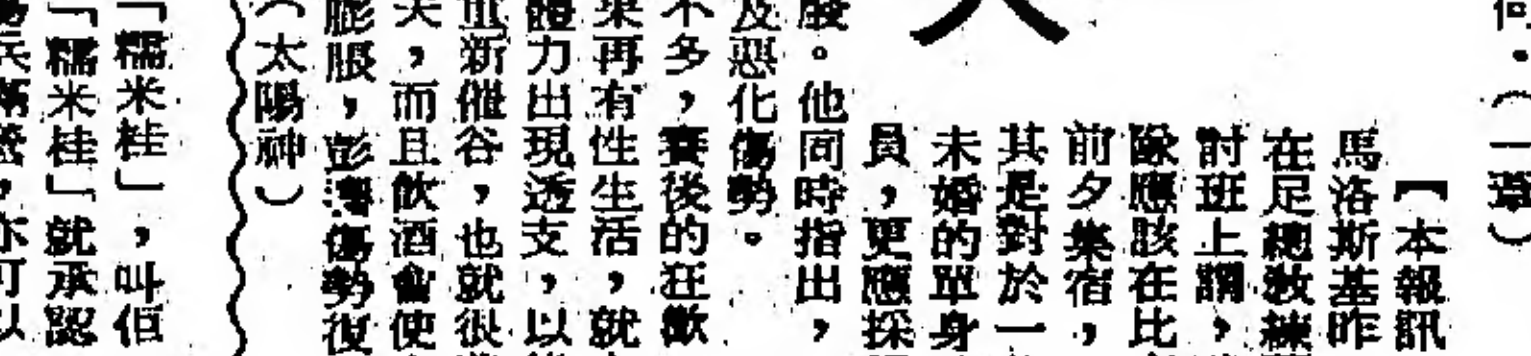 何．（一葦）
【本報訊
馬洛斯基昨
在足總教練
討班上謂，
隊應該在比
前夕集宿，
其是對於一
未婚的單身
員，更應採
大
廢。他同時指出，
及惡化傷勢。
不多，賽後的狂歡
果再有性生活，就
體力出現透支，以
重新催谷，也就很
天，而且飲酒會使
膨脹，彭灣傷勢復
（太陽神）
「糯米桂」，叫佢
「糯米桂」就承認
亦可以